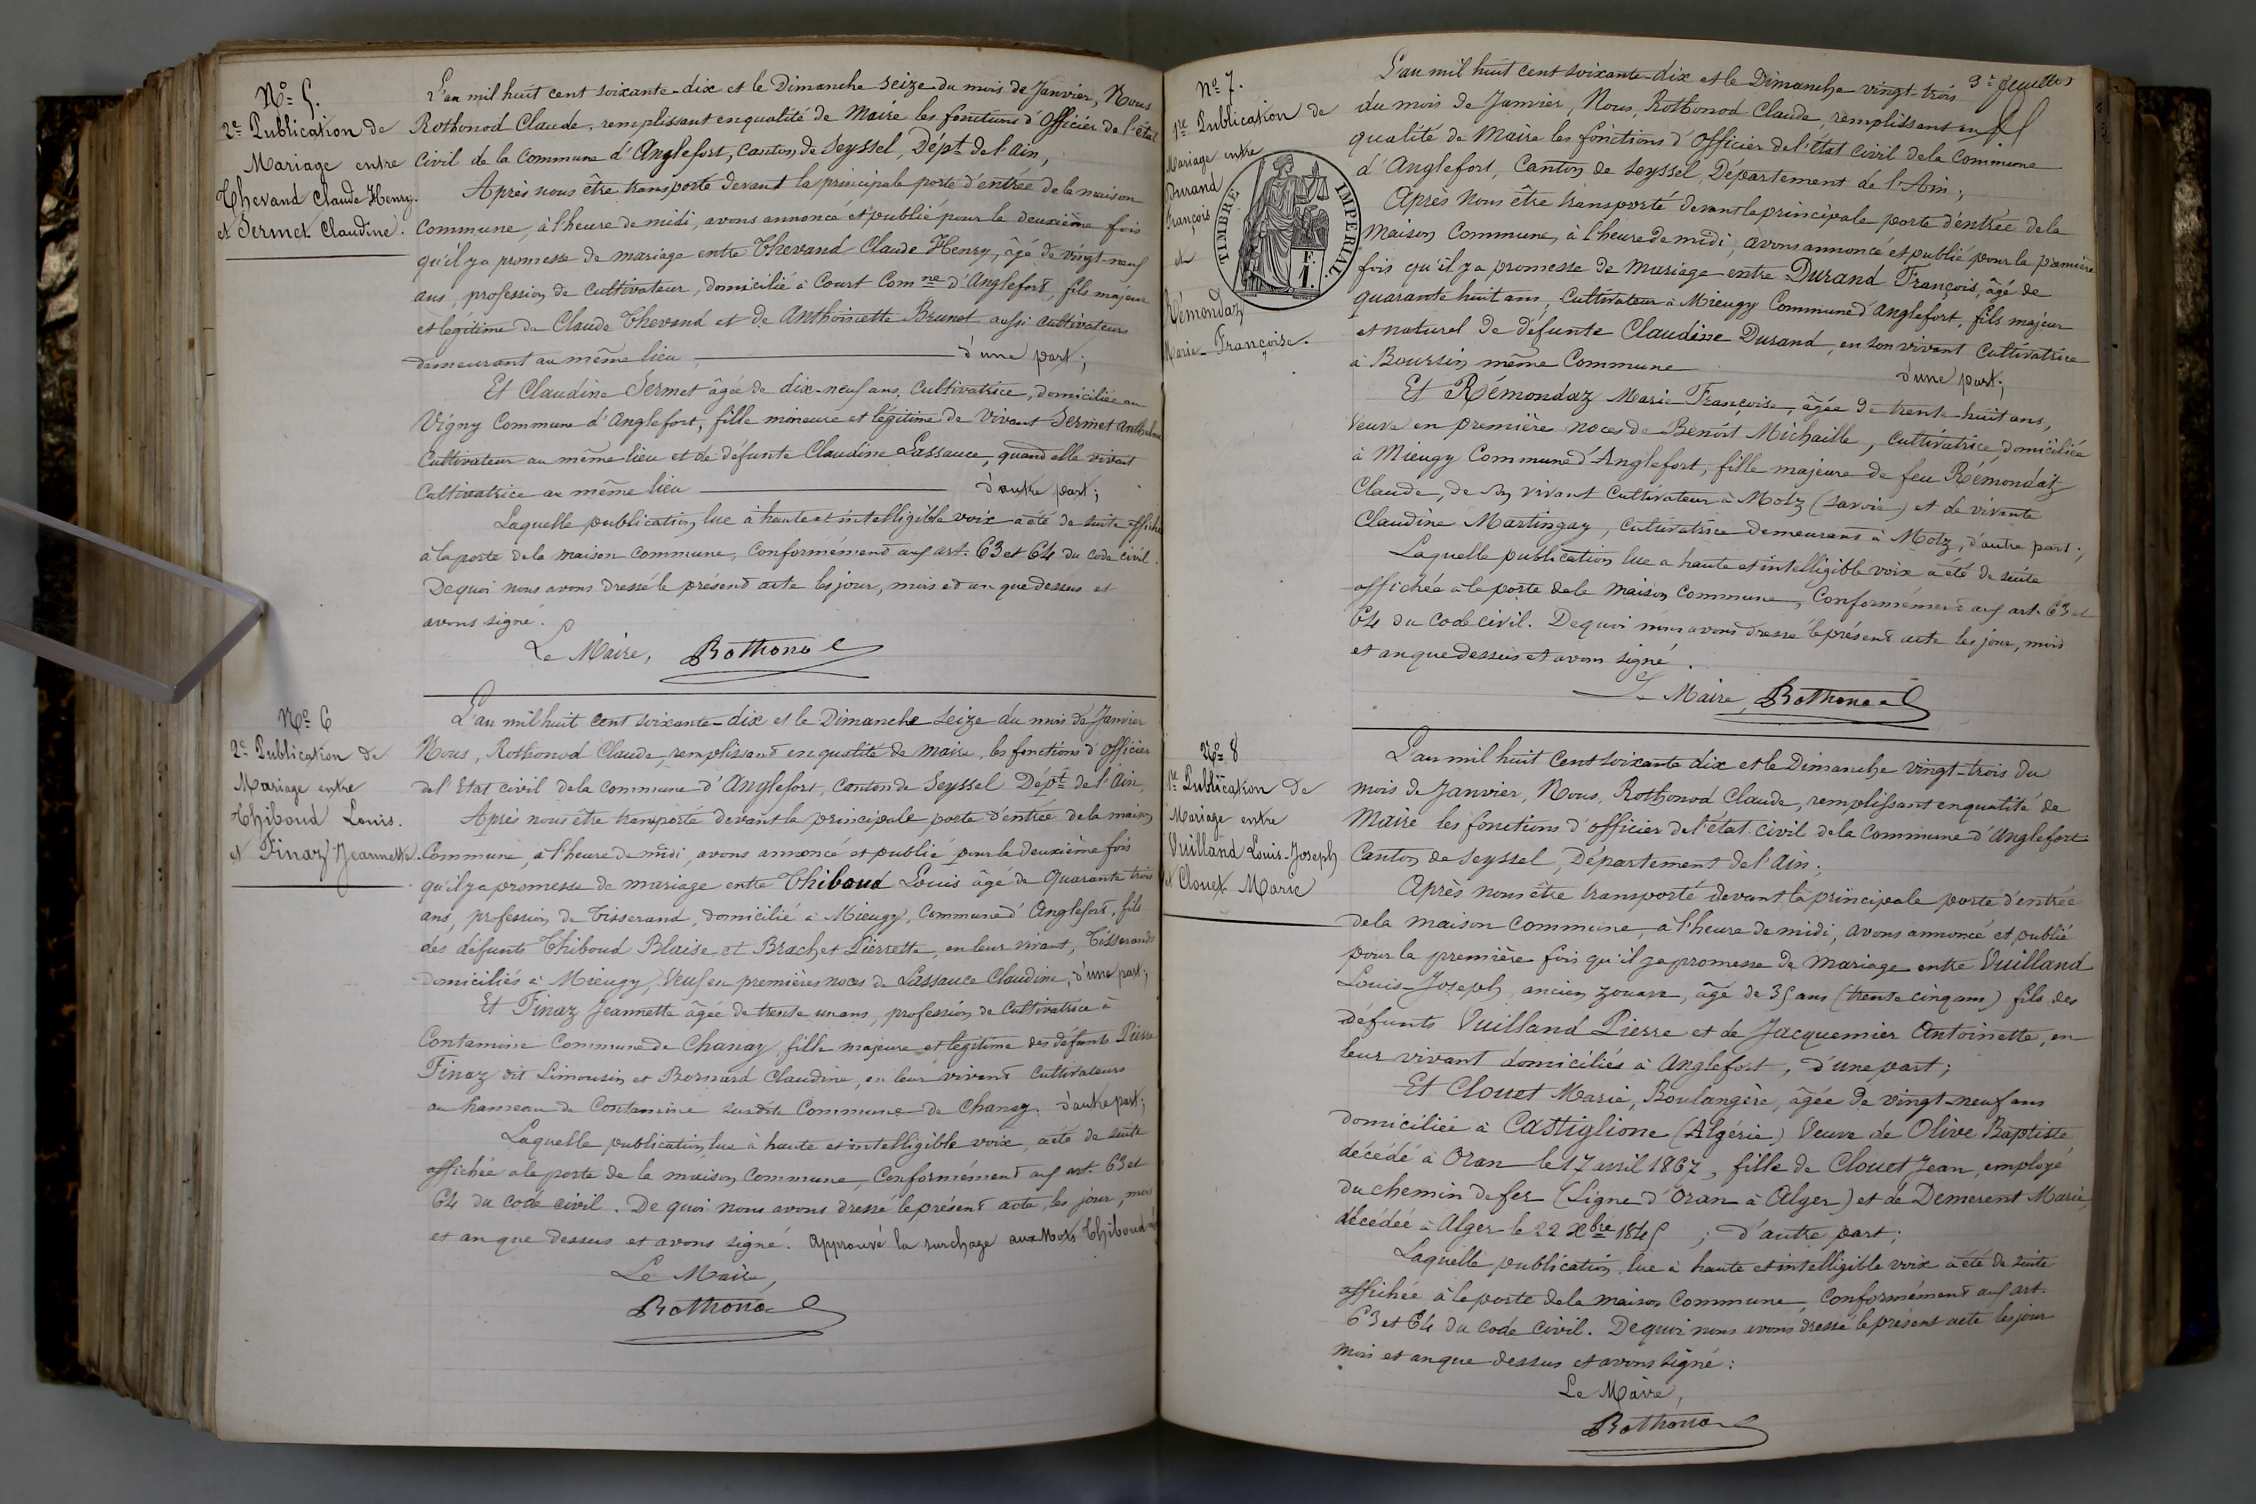 Nº 5.
2e Publication de
Mariage entre
Thevand Claude Henry.
et Sermet Claudine.
L'an mil huit cent soixante-dix et le Dimanche seize du mois de Janvier, Nous
Rothonod Claude, remplissant en qualité de Maire les fonctions d'Officier de l'état
civil de la Commune d'Anglefort, Canton de Seyssel, Dépt de l'Ain,
Après nous être transporté devant la principale porte d'entrée de la maison
Commune, à l'heure de midi, avons annoncé et publié pour la deuxième fois
qu'il y a promesse de mariage entre Thevand Claude Henry, âgé de vingt-neuf
ans, profession de Cultivateur, domicilié à Court Comne d'Anglefort, fils majeur
et légitime de Claude Thevand et de Anthoinette Brunet aussi cultivateurs
demeurant au même lieu d'une part;
Et Claudine Sermet âgée de dix-neuf ans, Cultivatrice, domiciliée au
Vigny Commune d'Anglefort, fille mineure et légitime de Vivant Sermet Anthelme
Cultivateur au même lieu et de défunte Claudine Lassauce, quand elle vivait
Cultivatrice au même lieu d'autre part;
Laquelle publication lue à haute et intelligible voix a été de suite affichée
à la porte de la maison commune, Conformément aux art. 63 et 64 du code civil.
De quoi nous avons dressé le présent acte les jour, mois et an que dessus et
avons signé.
Le Maire, Rothonod
Nº 6
2e Publication de
Mariage entre
Thiboud Louis.
et Finaz Jeannette.
L'an mil huit cent soixante-dix et le Dimanche seize du mois de Janvier
Nous, Rothonod Claude, remplissant en qualité de maire, les fonctions d'Officier
de l'Etat civil de la Commune d'Anglefort, Canton de Seyssel Dépt de l'Ain,
Après nous être transporté devant la principale porte d'entrée de la maison
Commune, à l'heure de midi, avons annoncé et publié pour la deuxième fois
qu'il y a promesse de mariage entre Thiboud Louis âgé de quarante trois
ans, profession de Tisserand, domicilié à Mieugy, Commune d'Anglefort, fils
des défunts Thiboud Blaise et Brachet Pierrette, en leur vivant, Tisserands
domiciliés à Mieugy, Veuf en premières noces de Lassauce Claudine, d'une part;
Et Finaz Jeannette âgée de trente un ans, profession de Cultivatrice à
Contamine Commune de Chanay, fille majeure et légitime des défunts Pierre
Finaz dit Limousin et Bornard Claudine, en leur vivant Cultivateurs
au hameau de Contamine susdite Commune de Chanay. d'autre part;
Laquelle publication lue à haute et intelligible voix, a été de suite
affichée à la porte de la maison commune, Conformément aux art. 63 et
64 du code civil. De quoi nous avons dressé le présent acte, les jour, mois
et an que dessus et avons signé. Approuvé la surchage aux Mots Thiboud
Le Maire,
Rothonod
3e feuillet
Nº 7.
1re Publication de
Mariage entre
Durand
François
et
Rémondaz
Marie-Françoise.
TIMBRE IMPÉRIAL.
1 F.
L'an mil huit cent soixante-dix et le Dimanche vingt-trois
du mois de Janvier, Nous, Rothonod Claude, remplissant en
qualité de Maire les fonctions d'Officier de l'état civil de la Commune
d'Anglefort, Canton de Seyssel, Département de l'Ain;
Après Nous être transporté devant la principale porte d'entrée de la
Maison Commune, à l'heure de midi, avons annoncé et publié pour la première
fois qu'il y a promesse de Mariage entre Durand François, âgé de
quarante huit ans, Cultivateur à Mieugy Commune d'Anglefort, fils majeur
et naturel de défunte Claudine Durand, en son vivant Cultivatrice
à Boursin même Commune d'une part;
Et Rémondaz Marie Françoise, âgée de trente-huit ans,
Veuve en première noces de Benoît Michaille, Cultivatrice, domiciliée
à Mieugy Commune d'Anglefort, fille majeure de feu Rémondaz
Claude, de son vivant Cultivateur à Motz (Savoie) et de vivante
Claudine Martingay, Cultivatrice demeurant à Motz, d'autre part;
Laquelle publication lue a haute et intelligible voix a été de suite
affichée à la porte de la maison commune, Conformément aux art. 63 et
64 du code civil. De quoi nous avons dressé le présent acte les jour, mois
et an que dessus et avons signé.
Le Maire, Rothonod
Nº 8
1re Publication de
Mariage entre
Vuilland Louis-Joseph
et Clouet Marie
L'an mil huit Cent soixante dix et le Dimanche vingt-trois du
mois de Janvier, Nous, Rothonod Claude, remplissant en qualité de
Maire les fonctions d'officier de l'état civil de la Commune d'Anglefort
Canton de Seyssel, Département de l'Ain;
Après nous être transporté devant la principale porte d'entrée
de la maison Commune, à l'heure de midi, avons annoncé et publié
pour la première fois qu'il y a promesse de Mariage entre Vuilland
Louis-Joseph, ancien zouave, âgé de 35 ans (trente cinq ans) fils des
défunts Vuilland Pierre et de Jacquemier Antoinette, en
leur vivant domiciliés à Anglefort, d'une part;
Et Clouet Marie, Boulangère, âgée de vingt-neuf ans
domiciliée à Castiglione (Algérie) Veuve de Olive Baptiste
décédé à Oran le 17 avril 1867, fille de Clouet Jean, employé
du chemin de fer (Ligne d'Oran à Alger) et de Demerent Marie,
décédée à Alger le 22 Xbre 1845; d'autre part;
Laquelle publication lue à haute et intelligible voix a été de suite
affichée à la porte de la maison Commune, Conformément aux art.
63 et 64 du code civil. De quoi nous avons dressé le présent acte les jour
mois et an que dessus et avons signé:
Le Maire,
Rothonod